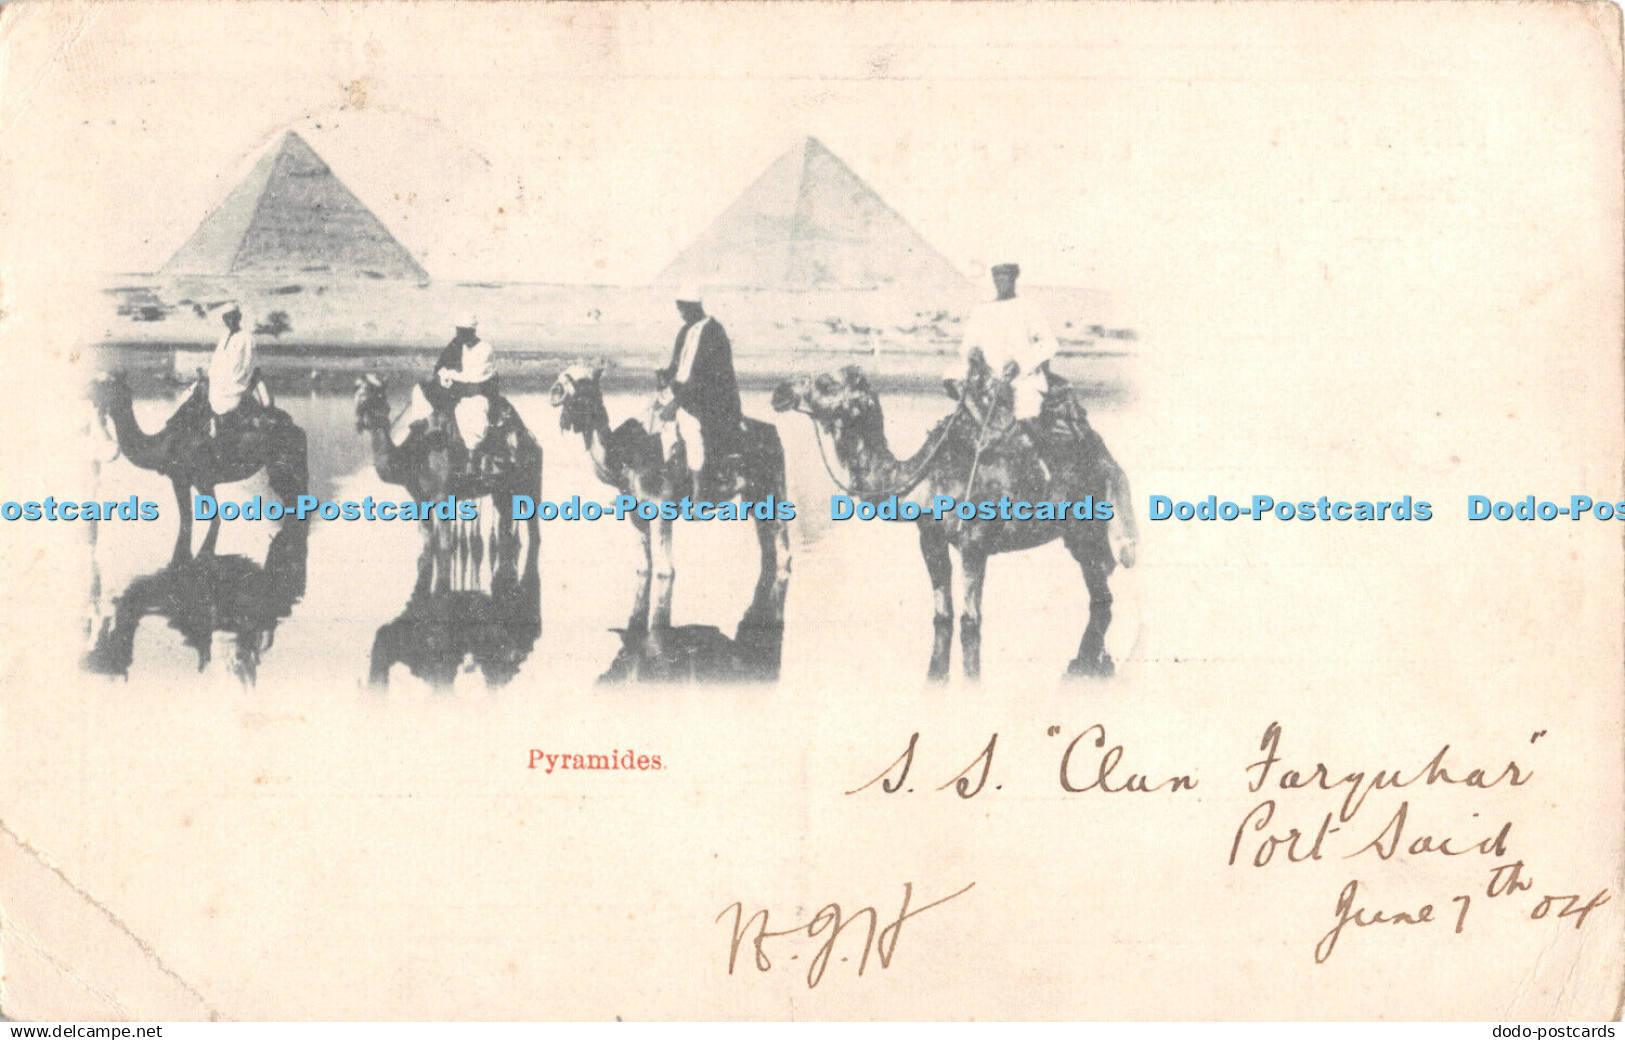 ostcards Dodo-Postcards Dodo-Postcards Dodo-Postcards Dodo-Postcards Dodo-Pos
Pyramides.
S. S. "Clan Farquhar"
Port Said
June 7th 04
www.delcampe.net
dodo-postcards